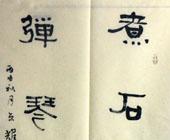 煮石
弹琴
丙申秋月